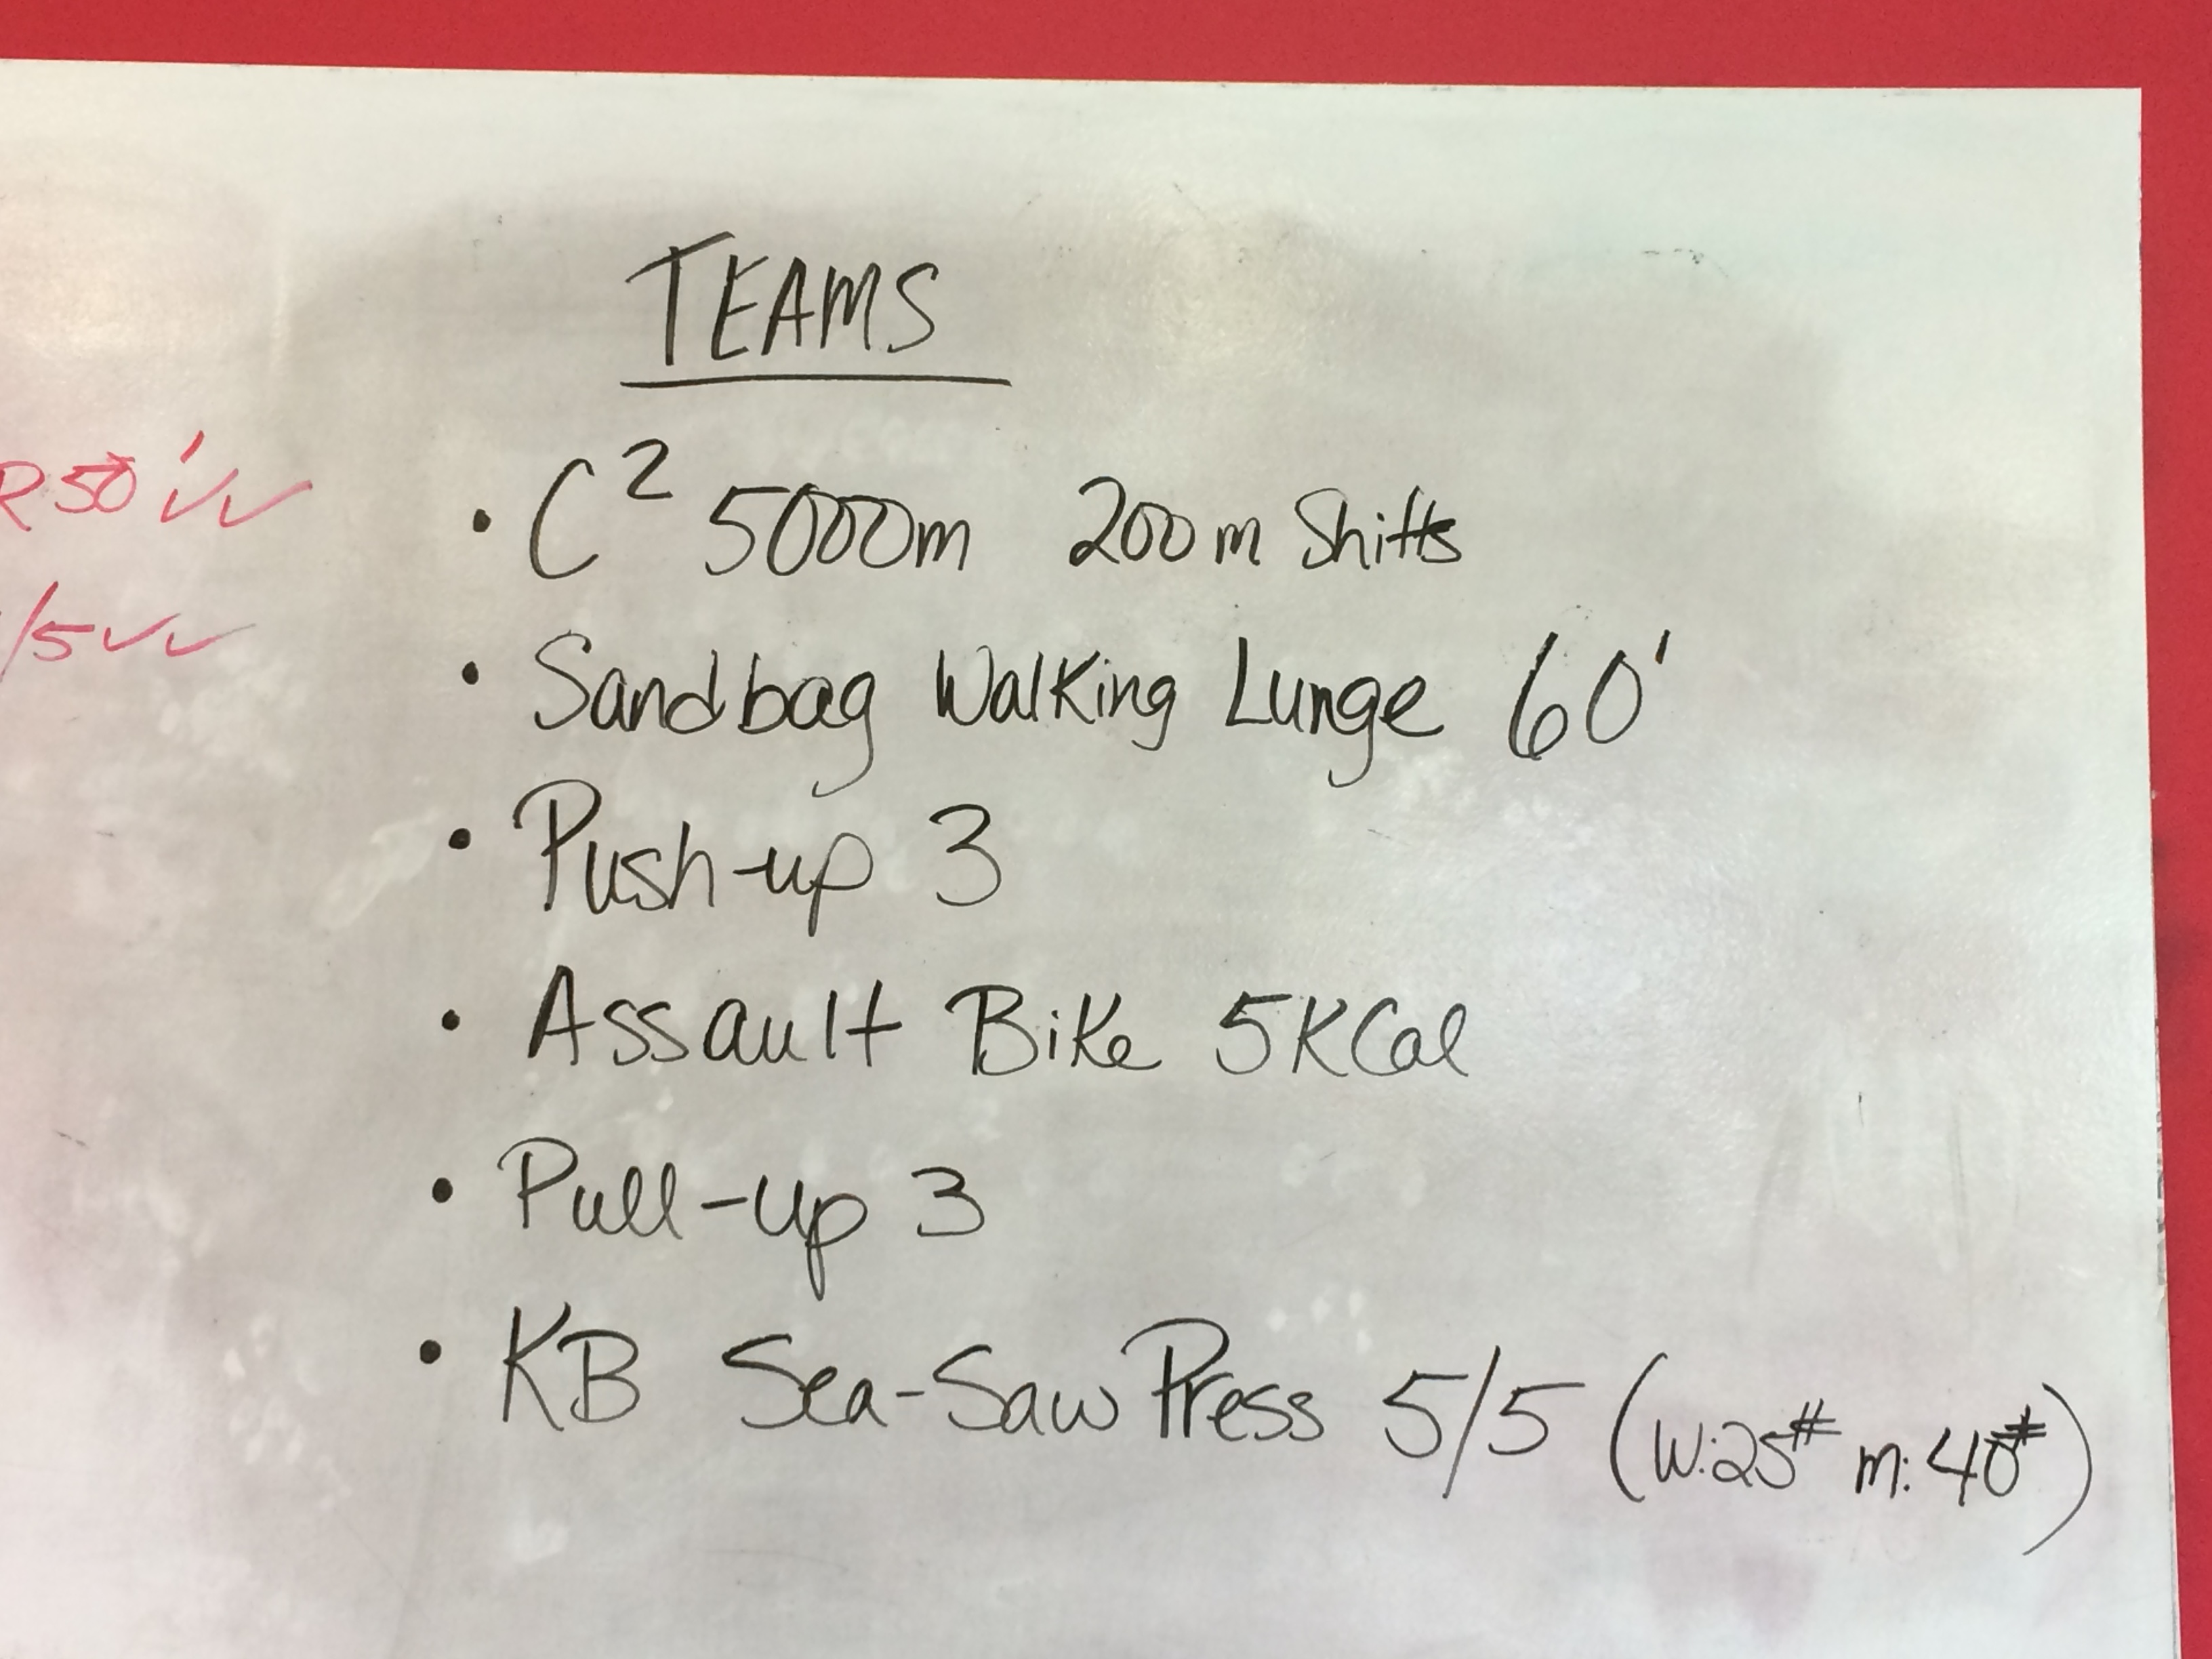 TEAMS
R 50' ✓✓
• C² 5000m 200m Shifts
/5 ✓✓
• Sandbag Walking Lunge 60'
• Push-up 3
• Assault Bike 5KCal
• Pull-up 3
• KB Sea-Saw Press 5/5 (W:25# m:40#)